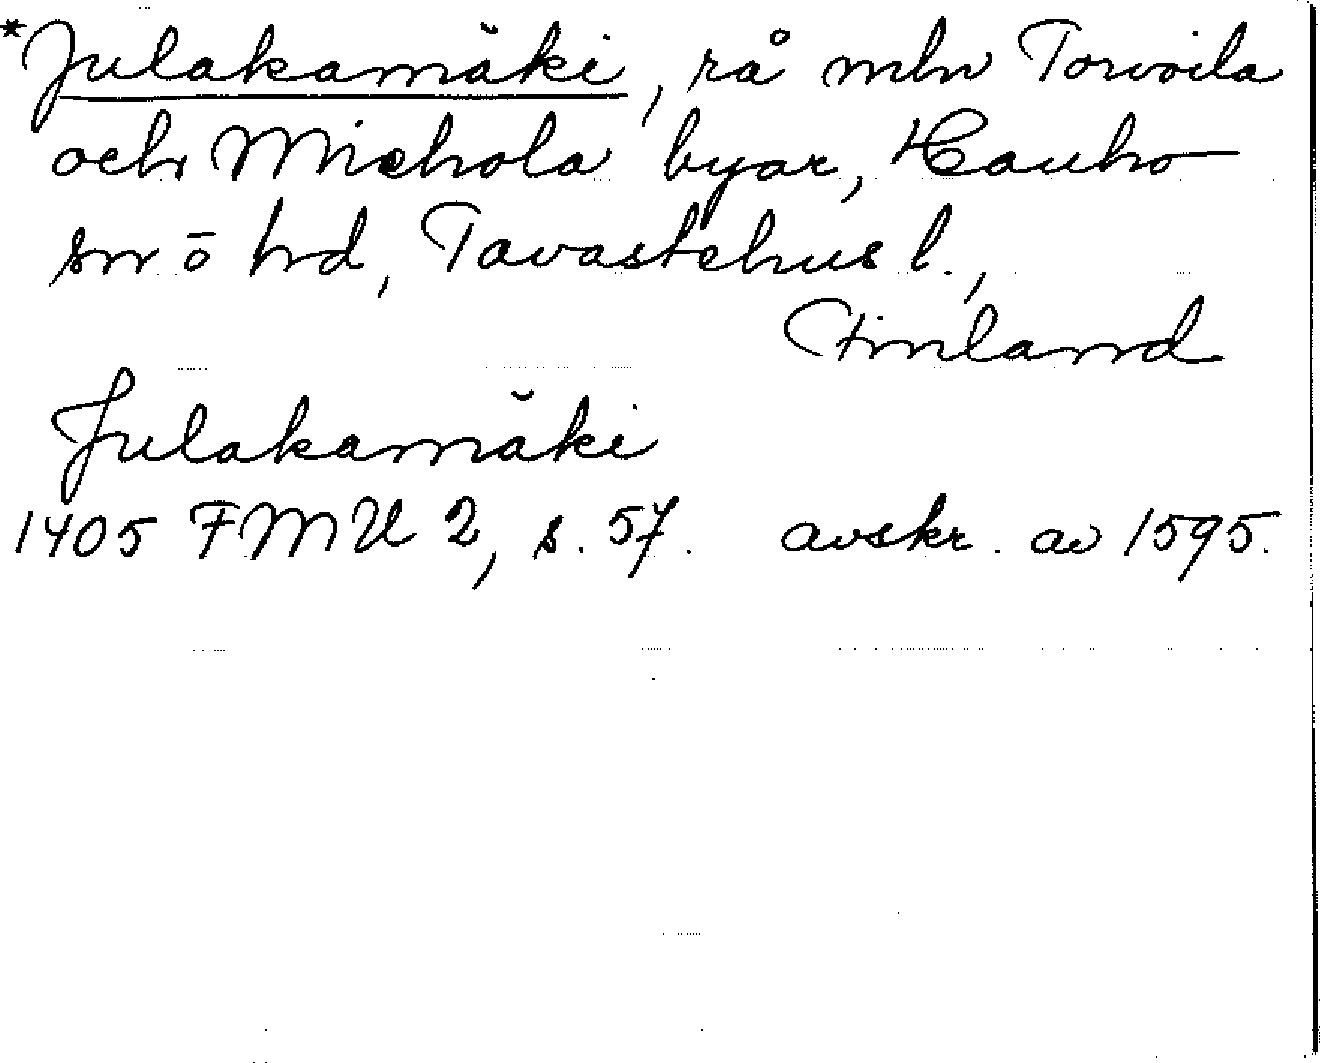 *Julakamäki, rå mln Torvoila
och Michola byar, Hauho
sn o hd, Tavastehus l.,
Finland
Julakamäki
1405 FMU 2, s. 57. avskr. av 1595.